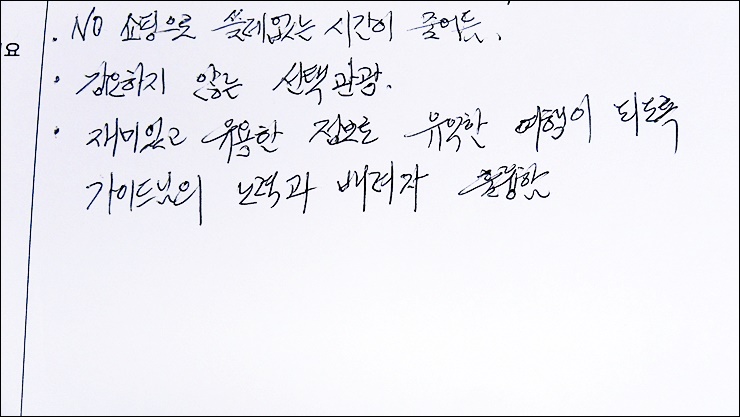 요
· NO 쇼핑으로 쓸데없는 시간이 줄어듬.
· 강요하지 않는 선택관광.
· 재미있고 유용한 정보로 유익한 여행이 되도록
가이드님의 노력과 배려가 훌륭함